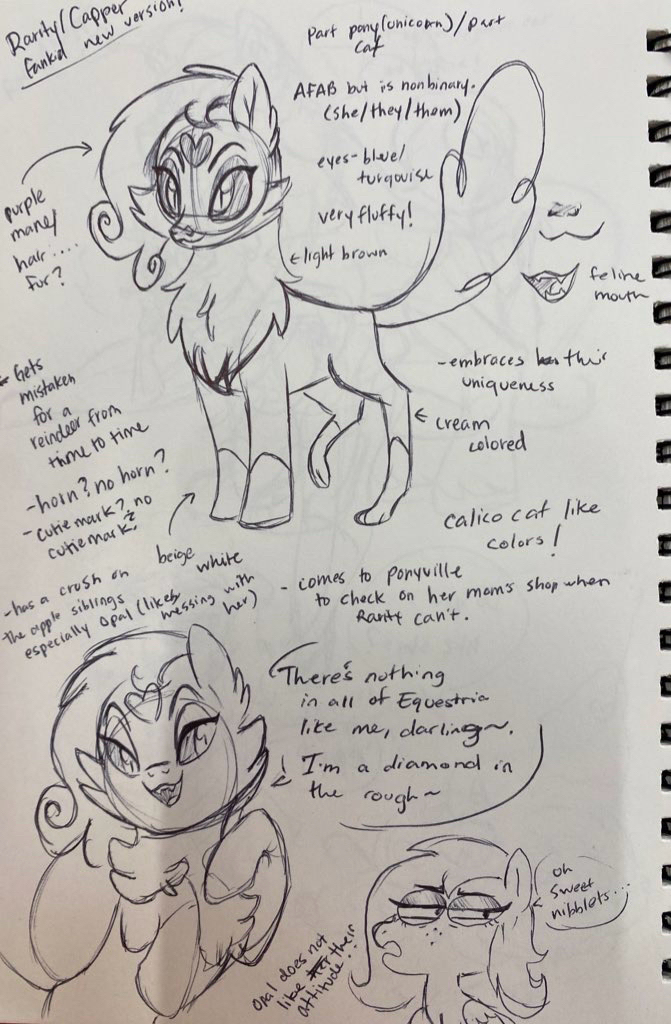 Rarity/Capper
fankid new version!
part pony(unicorn)/part
cat
AFAB but is nonbinary.
(she/they/them)
eyes-blue/
turqouise
very fluffy!
light brown
purple
mane/
hair....
fur?
feline
mouth
- Gets
mistaken
for a
reindeer from
time to time
-embraces their
uniqueness
cream
colored
-horn? no horn?
-cutie mark? no
cutie mark?
beige white
calico cat like
colors!
-has a crush on
the apple siblings
especially Opal (likes
messing with
her)
- comes to Ponyville
to check on her mom's shop when
Rarity can't.
There's nothing
in all of Equestria
like me, darling~.
I'm a diamond in
the rough~
oh
sweet
nibblets...
Opal does not
like their
attitude!!